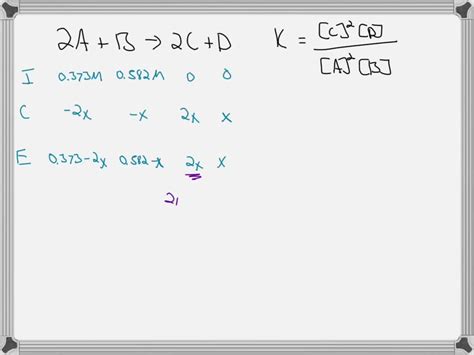 2A + B → 2C + D K = [C]² [D] / [A]² [B]
I 0.373M 0.582M 0 0
C -2x -x 2x x
E 0.373-2x 0.582-x 2x x
21